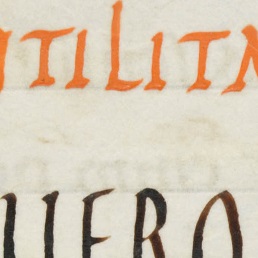 TILITA
UERO